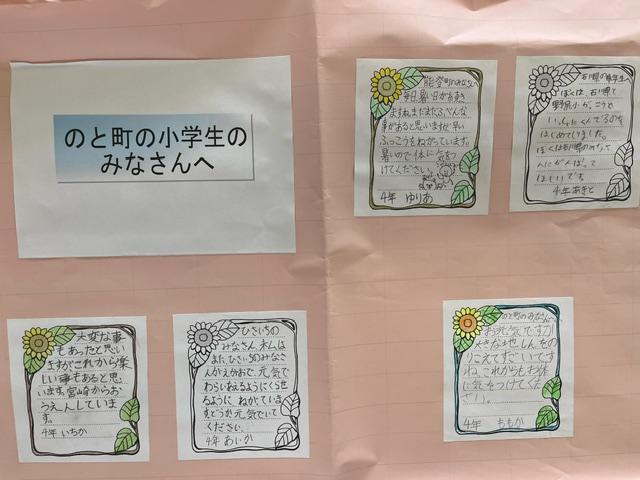 のと町の小学生の
みなさんへ
能登町のみなさんへ
毎日、暑い日がつづき
ますね。まだまだふべんな
事があると思いますが早い
ふっこうをねがっています。
暑いので体に気をつ
けてください。
4年 ゆりあ
石川県の小学生へ
ぼくは、石川県で
野見小が、こうと
いっちょくんでるのを
はじめてしりました。
ぼくは石川県のみなって
んにがんばって
ほしいです
4年あきと
大変な事
もあったと思い
ますがこれから楽
しい事もあると思
います。宮崎からお
うえんしていま
す。
4年 いちか
ひさいちの
みなさん、私は
また、ひさいちのみなさ
んがえがおで、元気で
わらいあえるようにくらせ
るように ねがっていま
すどうか元気でいて
ください。
4年 あいか
のと町のみなさんへ
お元気ですか
大きなじしんをの
りこえてすごいです
ね。これからもお体
に気をつけてくだ
さい。
4年 ももか